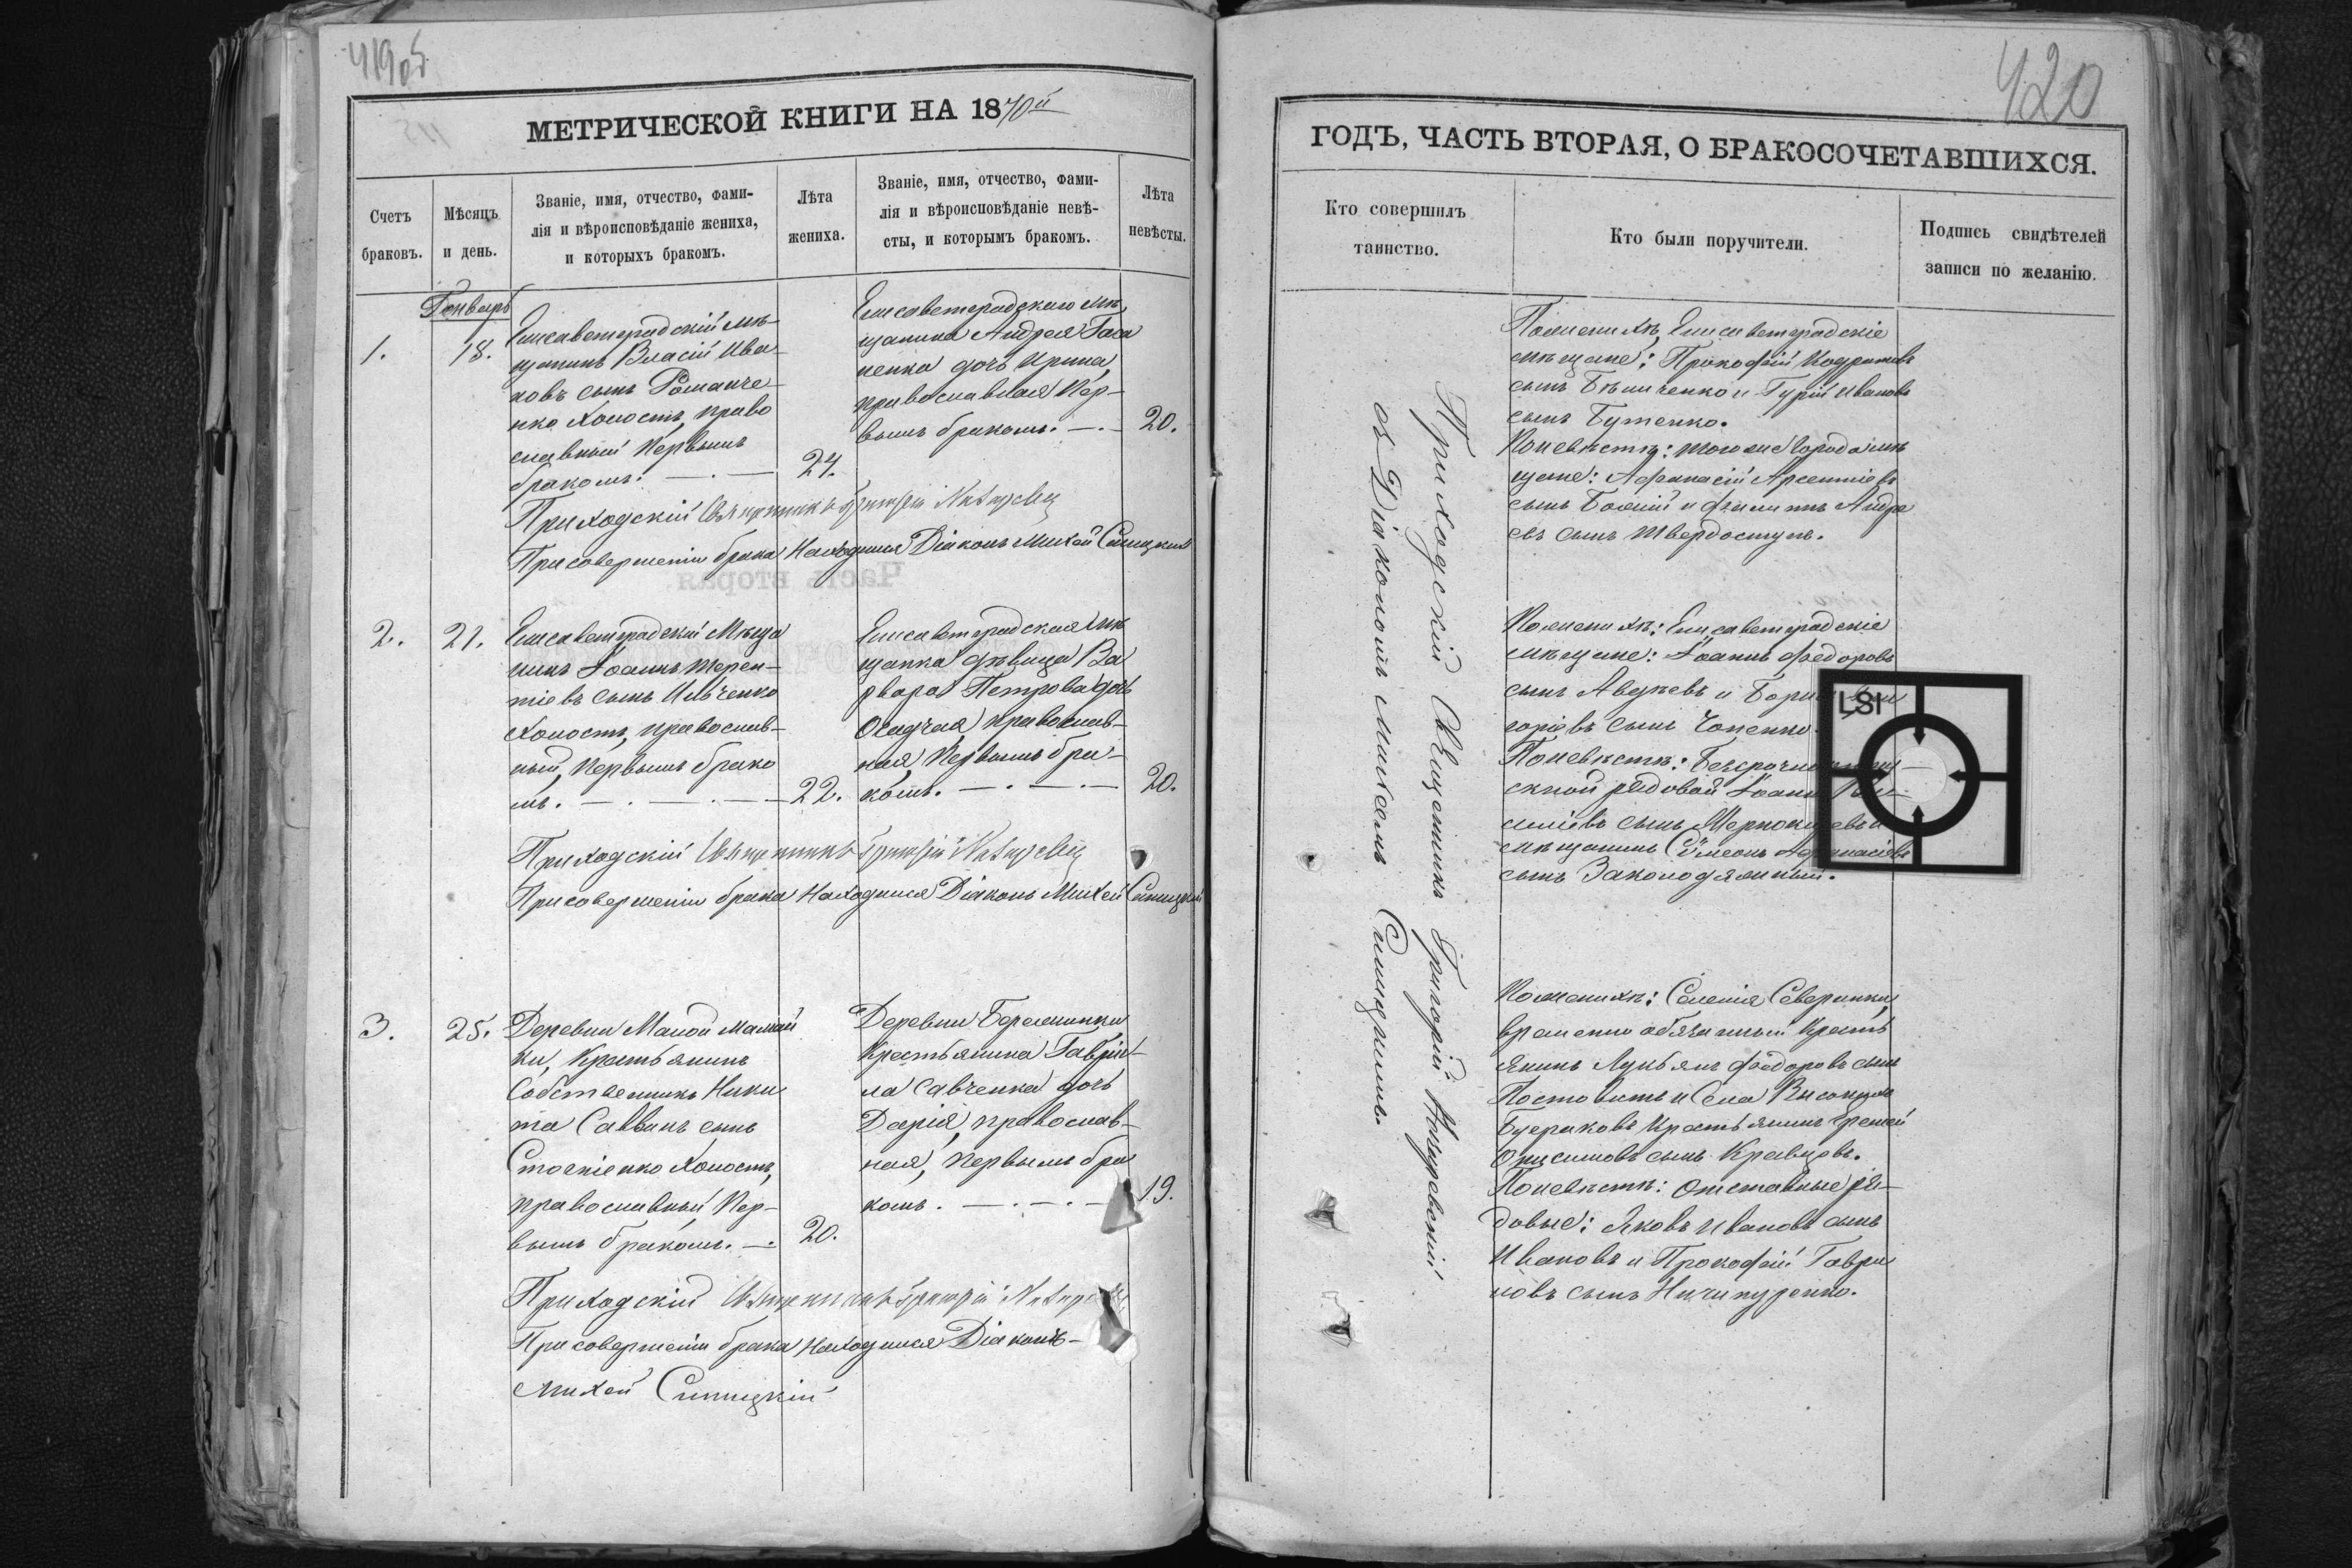 419об
МЕТРИЧЕСКОЙ КНИГИ НА 1870й
Счетъ браковъ.
Мѣсяцъ и день.
Званіе, имя, отчество, фами-
лія и вѣроисповѣданіе жениха,
и которыхъ бракомъ.
Лѣта жениха.
Званіе, имя, отчество, фами-
лія и вѣроисповѣданіе невѣ-
сты, и которымъ бракомъ.
Лѣта невѣсты.
Январь
1.
18.
Елисаветградскій мѣ-
щанинъ Власій Ива-
новъ сынъ Романче-
нко холостъ, право
славный первымъ
бракомъ.
24.
Елисаветградскаго мѣ
щанина Андрея
ненка дочь Ирина,
православная пер-
вымъ бракомъ.
20.
Приходскій Священникъ Григорій
При совершеніи брака находился Діаконъ Михей Синицкій
2.
21.
Елисаветградскій мѣща
нинъ Іоаннъ Терен-
тіевъ сынъ Ильченко
холостъ, православ-
ный, первымъ брако
мъ.
22.
Елисаветградская мѣ
щанка дѣвица Ва
рвара Петрова дочь
Осадчая, православ-
ная, первымъ бра-
комъ.
20.
Приходскій Священникъ Григорій
При совершеніи брака находился Діаконъ Михей Синицкій
3.
25.
Деревни Малой Мамай
ки, крестьянинъ
собственникъ Ники
та Саввинъ сынъ
холостъ,
православный, пер-
вымъ бракомъ.
20.
Деревни Бережинки
крестьянина Гаврі-
ла Савченка дочь
Дарія, православ-
ная, первымъ бра
комъ.
19.
Приходскій Священникъ Григорій
При совершеніи брака находился Діаконъ-
Михей Синицкій
420
ГОДЪ, ЧАСТЬ ВТОРАЯ, О БРАКОСОЧЕТАВШИХСЯ.
Кто совершилъ
таинство.
Кто были поручители.
Подпись свидѣтелей
записи по желанію.
Приходскій Священникъ Григорій
съ Діакономъ Михеемъ Синицкимъ.
По женихѣ, Елисаветградскіе
мѣщане: Прокофій Кодратовъ
сынъ и Гурій Ивановъ
сынъ Бутенко.
По невѣстѣ: того же города мѣ
щане: Афанасій Арсентіевъ
сынъ и Филиппъ Андре
евъ сынъ Твердоступъ.
По женихѣ: Елисаветградскіе
мѣщане: Іоаннъ Федоровъ
сынъ Авдѣевъ и
горіевъ сынъ Чопенко
По невѣстѣ:
скной рядовой Іоаннъ
силіевъ сынъ
мѣщанинъ Сімеонъ Афанасіевъ
сынъ Заколодяжный.
LSI
По женихѣ: Селенія Северинки,
временно обязанный кресть
янинъ Лукьянъ Федоровъ сынъ
и села Високихъ
Буераковъ крестьянинъ
Онисимовъ сынъ Кравцовъ.
По невѣстѣ: Отставные ря-
довые: Яковъ Ивановъ сынъ
Ивановъ и Прокофій Гаври
ловъ сынъ Ничипуренко.